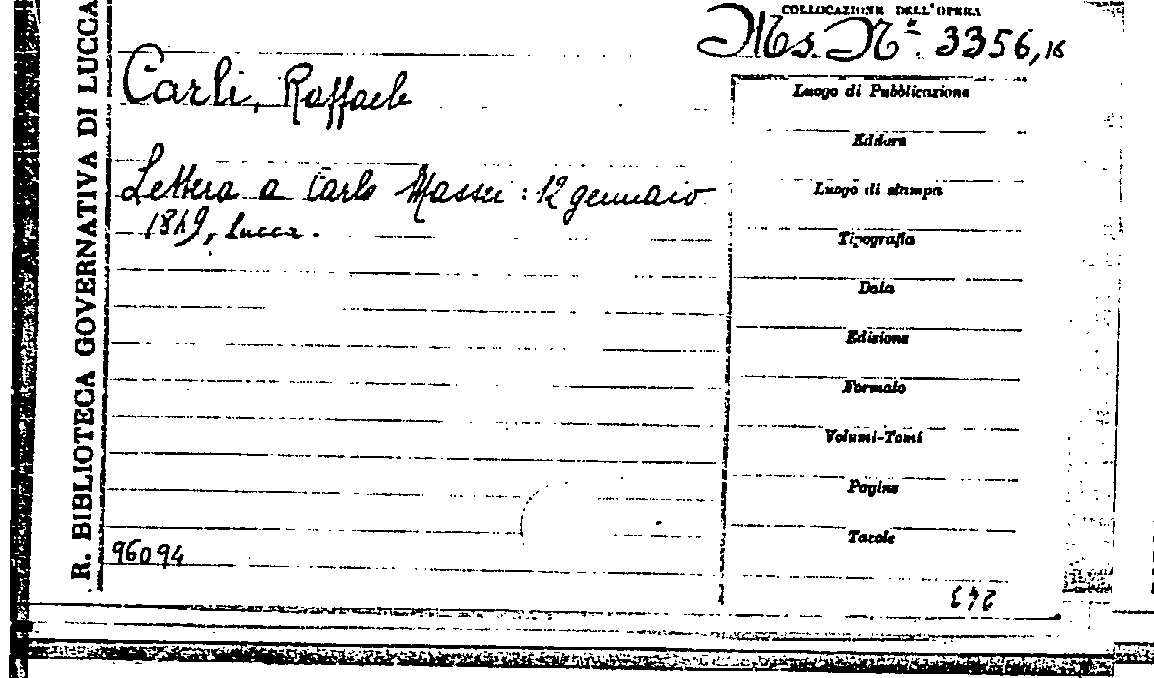 R. BIBLIOTECA GOVERNATIVA DI LUCCA
COLLOCAZIONE DELL'OPERA
Ms. N°. 3356,16
Carli, Raffaele
Lettera a Carlo Massei : 12 gennaio
1849, Lucca.
Luogo di Pubblicazione
Editore
Luogo di stampa
Tipografia
Data
Edizione
Formato
Volumi-Tomi
Pagine
Tavole
96094